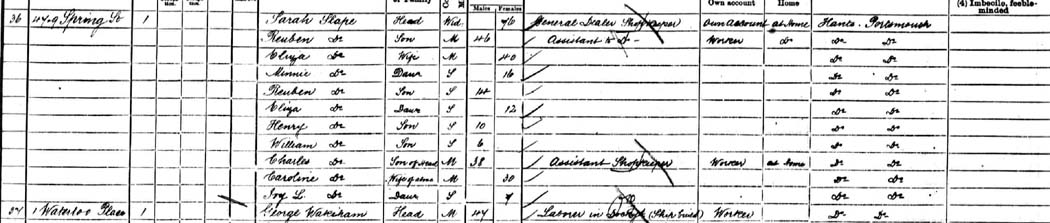 of Family Males Females Own account Home (4) Imbecile, feeble-minded
36 47-9 Spring St 1 Sarah Slape Head Wid. 76 General Dealer Shopkeeper own account at Home Hants. Portsmouth
Reuben Do Son M 46 Assistant to Do Worker Do Do Do
Eliza Do Wife M 40 Do Do
Minnie Do Daur S 16 Do Do
Reuben Do Son S 14 Do Do
Eliza Do Daur S 12 Do Do
Henry Do Son S 10 Do Do
William Do Son S 6 Do Do
Charles Do Son of Head M 38 Assistant Shopkeeper Worker at Home Do Do
Caroline Do Wife of above M 30 Do Do
Ivy L. Do Daur S 7 Do Do
37 1 Waterloo Place 1 George Wakeham Head M 47 Laborer in Dockyd Worker Do Do